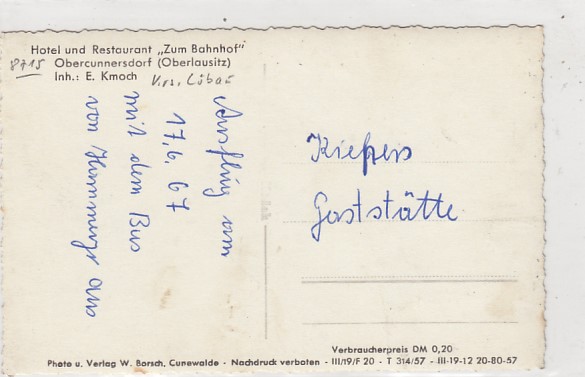 Hotel und Restaurant „Zum Bahnhof"
8715 Obercunnersdorf (Oberlausitz)
Inh.: E. Kmoch Krs. Löbau
Ausflug am
17.6.67
mit dem Bus
von aus
Kiefers
Gaststätte
Verbraucherpreis DM 0,20
Photo u. Verlag W. Borsch, Cunewalde - Nachdruck verboten - III/19/F 20 - T 314/57 - III-19-12 20-80-57